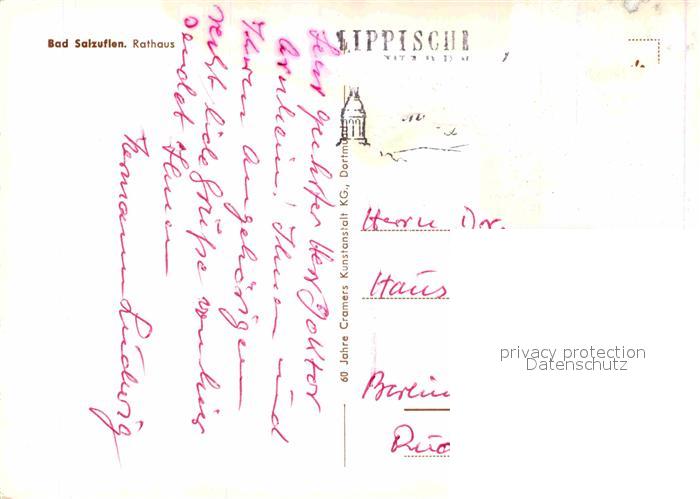 Bad Salzuflen. Rathaus
Sehr geehrter Herr Doktor
Arnheim! Ihnen und
Ihren Angehörigen
recht liebe Grüße von hier
sendet Ihnen
Hermann Ludwig
60 Jahre Cramers Kunstanstalt KG., Dortmund
LIPPISCHE
Herrn Dr.
Haus
Berlin
privacy protection
Datenschutz